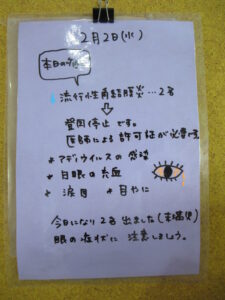 2月2日(水)
本日の
流行性角結膜炎…2名
⇩
登園停止です。
医師による許可証が必要です
* アデノウイルスの感染
* 白眼の充血
* 涙目 * 目やに
今日になり2名出ました(未満児)
眼の症状に注意しましょう。